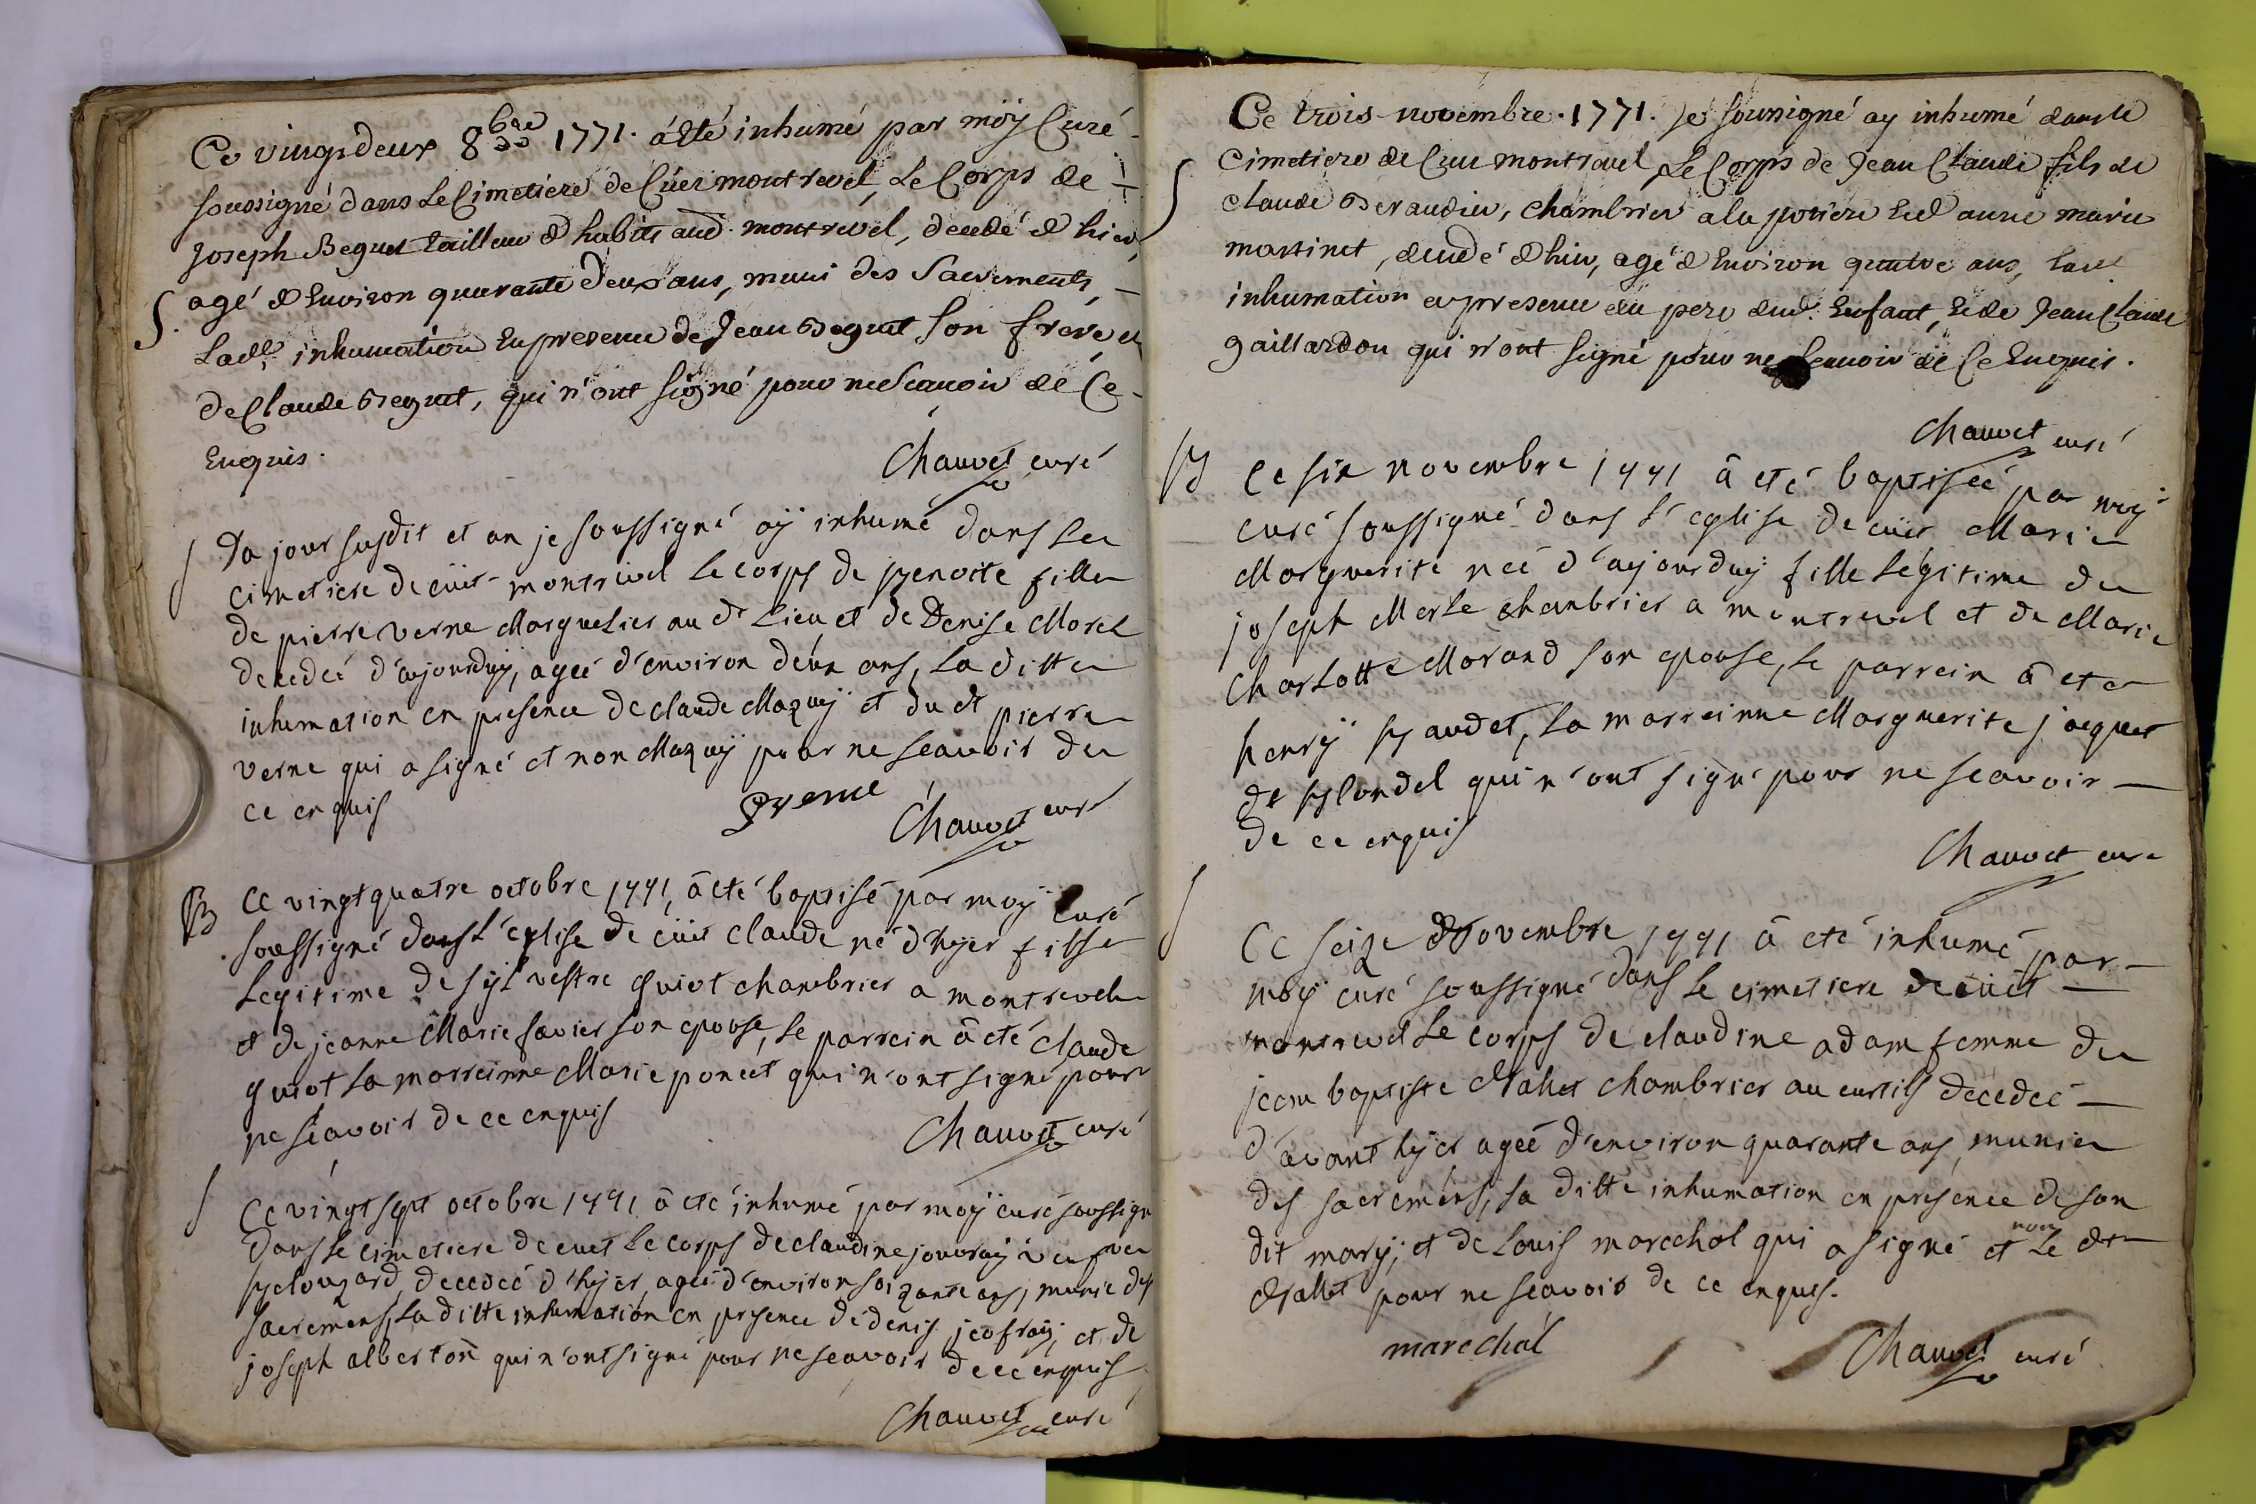 Ce vingt deux 8bre 1771. a été inhumé par moÿ Curé
soussigné dans Le Cimetiere de Cüet montrevel, Le Corps de
Joseph Beguet tailleur d'habits aud. montrevel, decedé d'hier,
S. agé d'Environ quarante deux ans, muni des Sacrements,
Ladte. inhumation En presence de Jean Beguet son frere, et
de Claude Beguet, qui n'ont signé pour ne Scavoir de Ce
Enquis.
Chauvet curé
S Du jour susdit et an je soussigné aÿ inhumé dans le
cimetiere de cüet montrevel le corps de Benoite fille
de pierre verne Marguelier au dt Lieu et de Denise Morel
decedeé d'aujourduÿ, ageé d'environ deux ans, la ditte
inhumation en presence de claude Mazuÿ et du dt pierre
verne qui a signé et non Mazuÿ pour ne seavoir de
ce enquis
Pverne
Chauvet curé
B Ce vingt quatre octobre 1771, â eté baptisé par moÿ curé
soussigné dans L'eglise de cüet claude né d'hyer fils
Legitime de sÿlvestre guiot chambrier a montrevel
et de jeanne Marie favier son epouse, le parrein â eté claude
guiot la marreinne Marie poncét qui n'ont signé pour
ne seavoir de ce enquis
Chauvet curé
S Ce vingt sept octobre 1771 â eté inhumé par moÿ curé soussigné
dans le cimetiere de cuet le corps de claudine jouvraÿ veufve
Belouzard, decedeé d'hÿer, ageé d'environ soizante ans, munie des
sacremens, la ditte inhumation en presence de denis jeofraÿ, et de
joseph alberton qui n'ont signé pour ne seavoir de ce enquis
Chauvet curé
Ce trois novembre. 1771. Je soussigné ay inhumé dans le
S Cimetiere de Cuet montrevel Le Corps de Jean Claude fils de
claude Beraudier, chambrier a la poriere Et d'anne marie
martinet, decedé d'hier, agé d'Environ quatre ans, Ladte
inhumation en presence du pere dud. Enfant, Et de Jean Claude
gaillardon qui n'ont signé pour ne Scauoir de Ce Enquis.
Chauvet curé
B Ce six novembre 1771 â eté baptiseé par moÿ
curé soussigné dans L'eglise de cüet Marie
Marguerite neé d'aujourduÿ fille Légitime de
joseph Merle chambrier a montrevel et de Marie
Charlotte Morand son epouse, le parrein â eté
henrÿ Baudet, la marreinne Marguerite jacquet
dt Blondel qui n'ont signé pour ne seavoir
de ce enquis
Chauvet curé
S Ce seize Novembre 1771 â eté inhumé par
moÿ curé soussigné dans le cimetiere de cüet
montrevel le corps de claudine adam femme de
jean baptiste Nallet chambrier au curtils décedeé
d'avant hÿer ageé d'environ quarante ans, munie
des sacremens, la ditte inhumation en presence de son
dit marÿ, et de Louis marechal qui a signé et non le dt
Nallet pour ne seavoir de ce enquis.
marechal
Chauvet curé